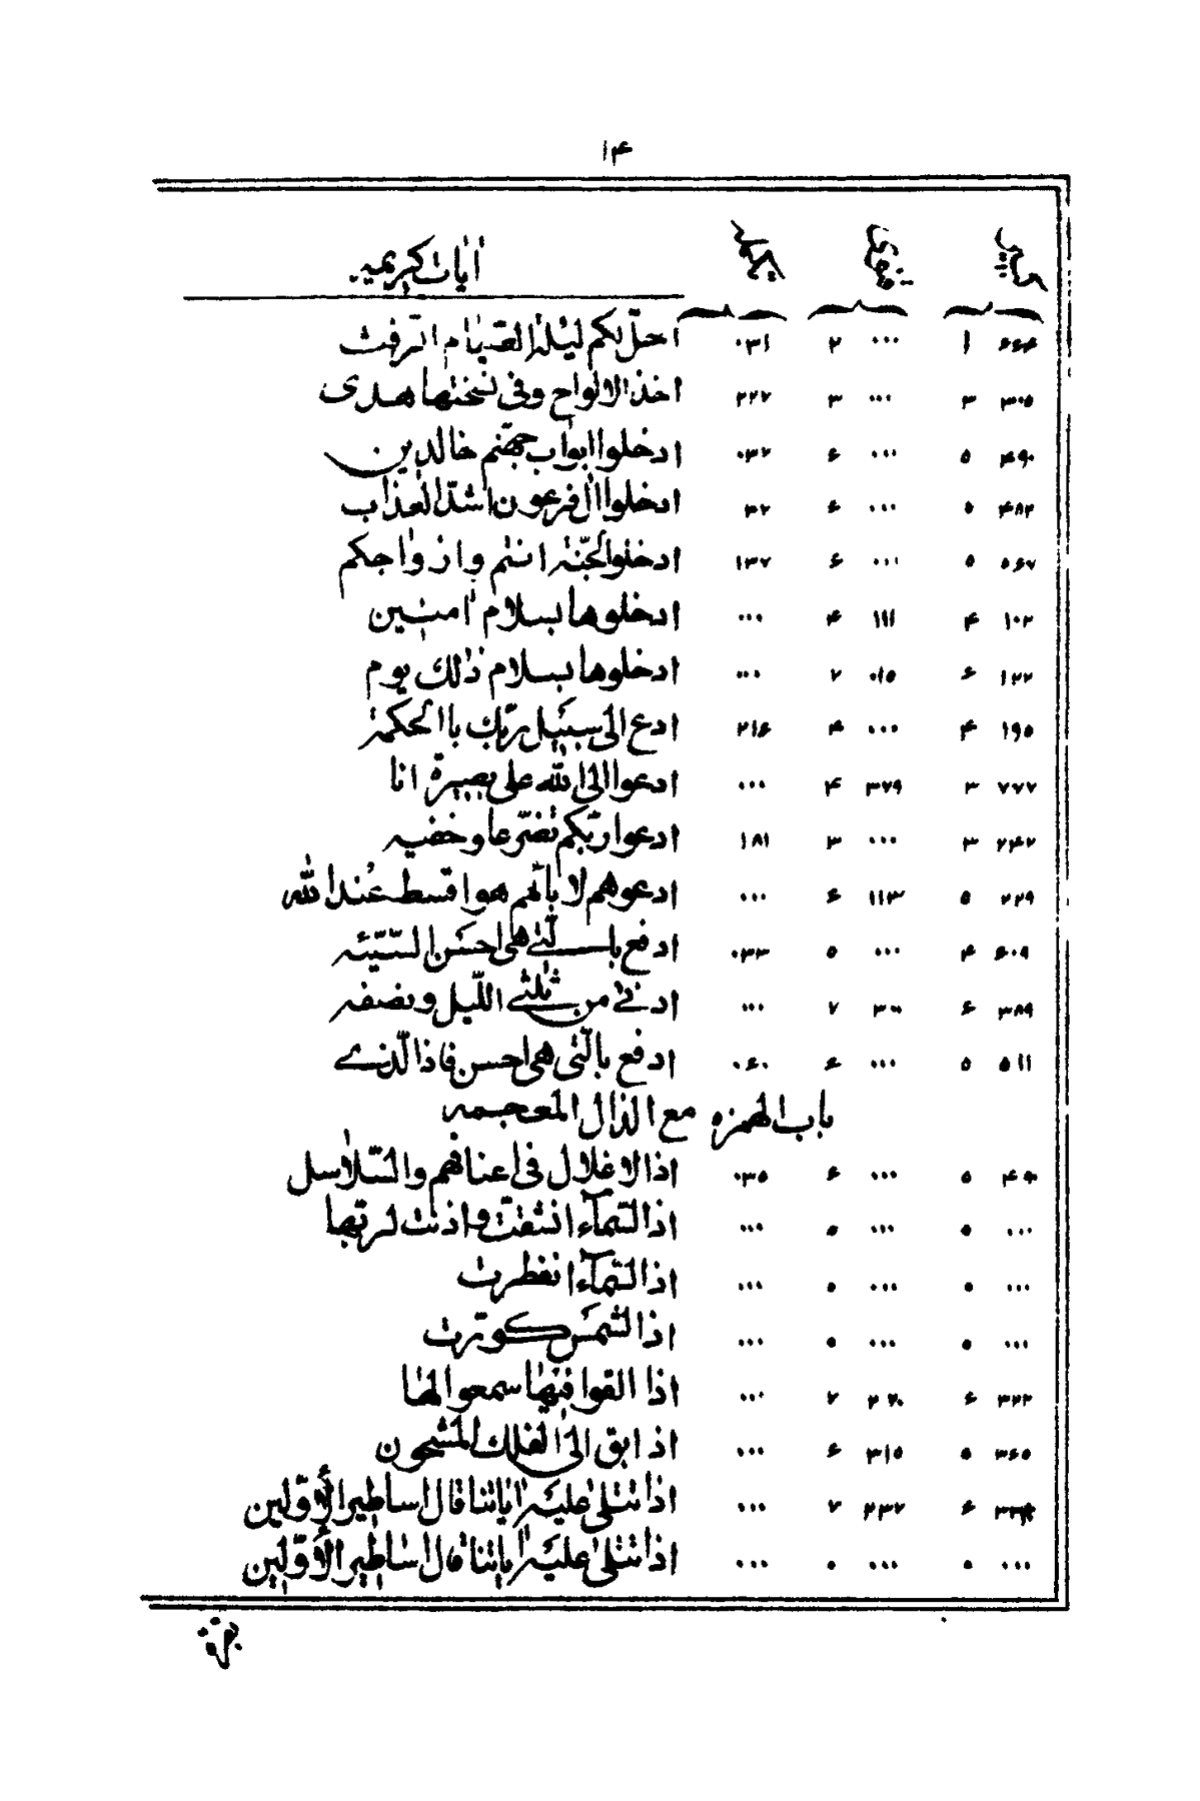 ۱۴
آیات کریمه
۶۶۴ ۱ ۰۰۰ ۲ ۰۳۱ احلّ لکم لیلة الصیام الرفث
۳۰۵ ۳ ۰۰۰ ۳ ۲۲۷ اخذ الالواح وفی نسختها هدی
۴۹۰ ۵ ۰۰۰ ۶ ۰۳۲ ادخلوا ابواب جهنّم خالدین
۴۸۲ ۵ ۰۰۰ ۶ ۳۲ ادخلوا ال فرعون اشدّ العذاب
۵۶۷ ۵ ۰۰۰ ۶ ۱۳۷ ادخلوالجنّة انتم وازواجکم
۱۰۲ ۴ ۱۱۱ ۴ ۰۰۰ ادخلوها بسلام امنین
۱۲۲ ۶ ۰۱۵ ۷ ۰۰۰ ادخلوها بسلام ذلک یوم
۱۹۵ ۴ ۰۰۰ ۴ ۲۱۶ ادع الی سبیل ربّک باالحکمة
۷۷۷ ۳ ۳۷۹ ۴ ۰۰۰ ادعوا الی الله علی بصیرة انا
۲۴۲ ۳ ۰۰۰ ۳ ۱۸۱ ادعوا ربّکم تضرّعا وخفیه
۲۲۹ ۵ ۱۱۳ ۶ ۰۰۰ ادعوهم لابائهم هوا قسط عند الله
۶۰۹ ۴ ۰۰۰ ۵ ۰۳۳ ادفع بالّتی هی احسن السّیّئه
۳۸۹ ۶ ۷ ۰۰۰ ادنی من ثلثی اللّیل ونصفه
۵۱۱ ۵ ۰۰۰ ۶ ۰۶۰ ادفع بالّتی هی احسن فاذا الّذی
باب الهمزه مع الذال المعجمه
۵ ۰۰۰ ۶ ۰۳۵ اذالاغلال فی اعناقهم والسّلاسل
۰۰۰ ۰ ۰۰۰ ۰ ۰۰۰ اذا السّمآء انشقّت واذنت لربّها
۰۰۰ ۰ ۰۰۰ ۰ ۰۰۰ اذا السّمآء انفطرت
۰۰۰ ۰ ۰۰۰ ۰ ۰۰۰ اذا الشّمس کوّرت
۳۲۲ ۶ ۲۲۰ ۷ ۰۰۰ اذا القوا فیها سمعوا لها
۳۶۵ ۵ ۳۱۵ ۶ ۰۰۰ اذ ابق الی الفلک المشحون
۶ ۲۳۷ ۷ ۰۰۰ اذا تتلی علیه ایاتنا قال اساطیر الاوّلین
۰۰۰ ۰ ۰۰۰ ۰ ۰۰۰ اذا تتلی علیه ایاتنا قال اساطیر الاوّلین